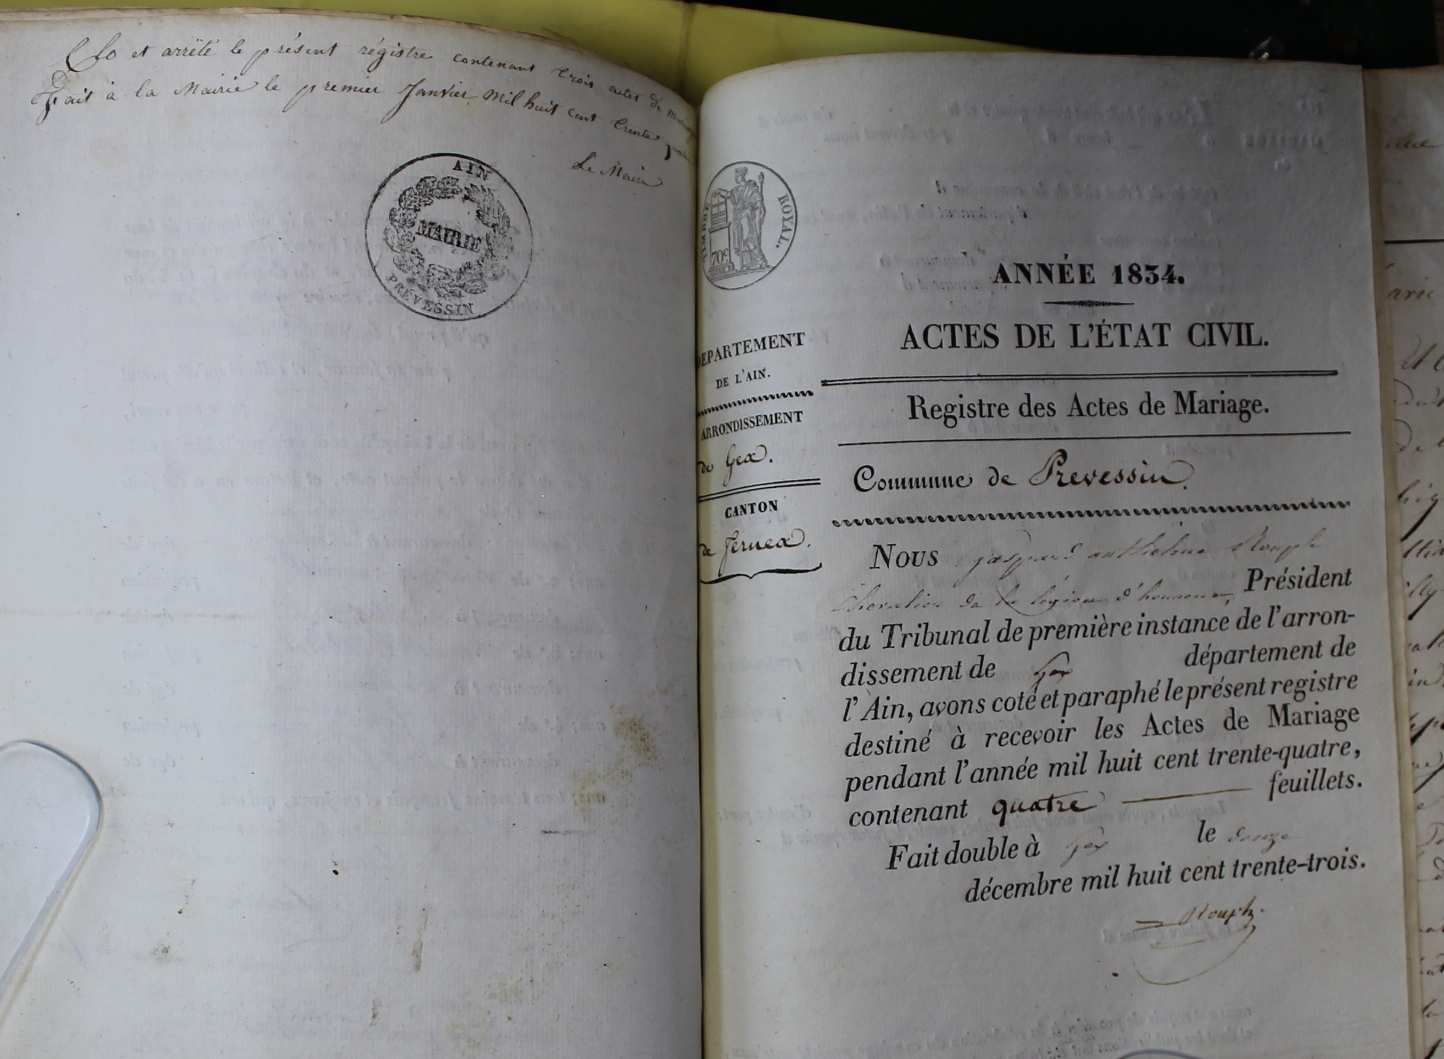 Clo et arrêté le présent régistre contenant trois actes de
Fait à la Mairie le premier Janvier Mil huit cent trente
Le Maire
AIN
MAIRIE
PRÉVESSIN
TIMBRE ROYAL.
70c
ANNÉE 1834.
ACTES DE L'ÉTAT CIVIL.
DEPARTEMENT
DE L'AIN.
ARRONDISSEMENT
de Gex.
CANTON
de Fernex.
Registre des Actes de Mariage.
Commune de Prevessin.
Nous gaspard anthelme Rouph
Chevalier de la légion d'honneur, Président
du Tribunal de première instance de l'arron-
dissement de Gex département de
l'Ain, avons coté et paraphé le présent registre
destiné à recevoir les Actes de Mariage
pendant l'année mil huit cent trente-quatre,
contenant quatre feuillets.
Fait double à Gex le douze
décembre mil huit cent trente-trois.
Rouph